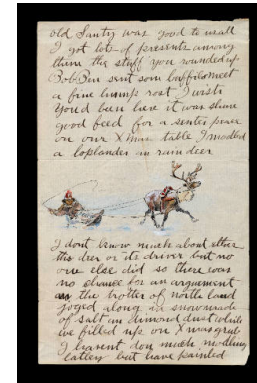 old Santy was good to us all
I got lots of presents among
them the stuff you rounded up
Bob sent som buffilo meet
a fine hump rost I wish
Youd been here it was shure
good feed for a center peace
on our Xmas table I modled
a loplander in rain deer
I dont know much about ether
the deer or its driver but no
one else did so there was
no chance for an arguement
as the trotter of north land
joged along in snow made
of salt an dimond dust while
we filled up on Xmas grub
I havent don much modling
latley but have painted